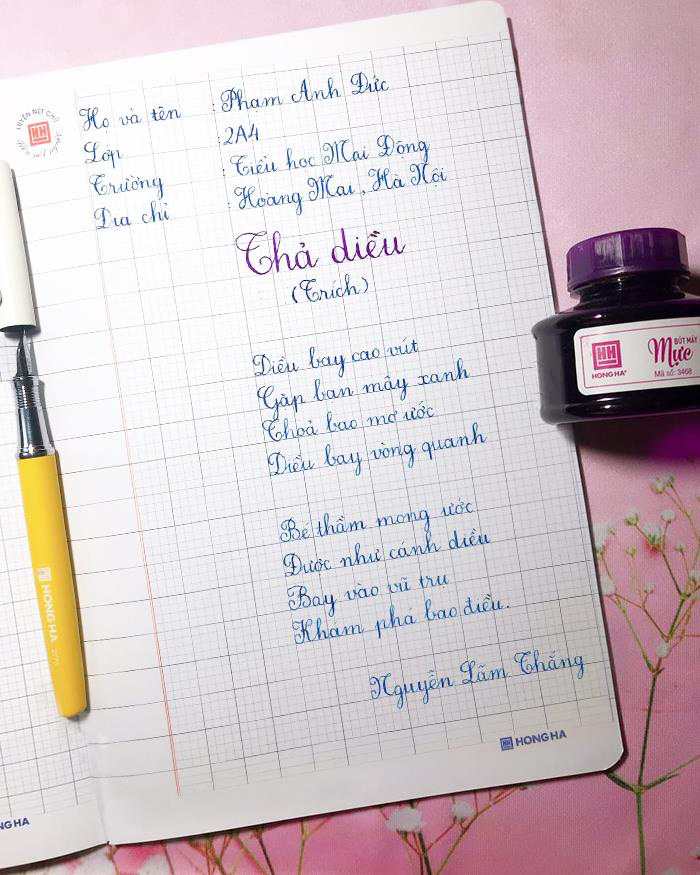 Họ và tên : Phạm Anh Đức
Lớp : 2A4
Trường : Tiểu học Mai Động
Địa chỉ : Hoàng Mai, Hà Nội
Thả diều
(Trích)
Diều bay cao vút
Gặp bạn mây xanh
Thoả bao mơ ước
Diều bay vòng quanh
Bé thầm mong ước
Được như cánh diều
Bay vào vũ trụ
Khám phá bao điều.
Nguyễn Lãm Thắng
HONG HA
HH
LUYỆN NÉT CHỮ
HONG HA
HH
HONG HA
BÚT MÁY
Mực
Mã số: 3468
NG HA